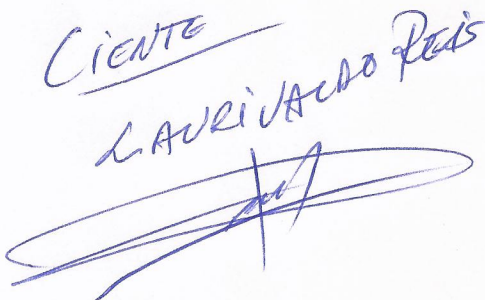 CiENTE
LAURiVALDO REiS